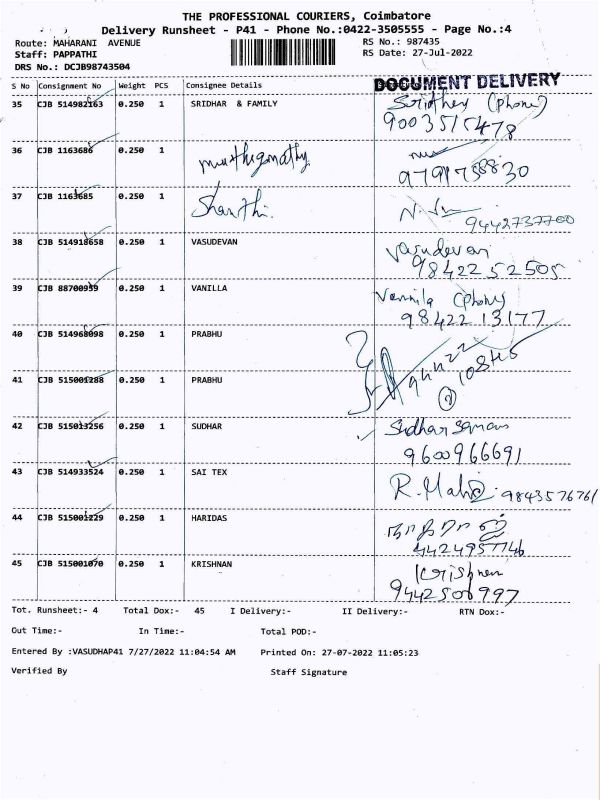 THE PROFESSIONAL COURIERS, Coimbatore
Delivery Runsheet - P41 - Phone No.:0422-3505555 - Page No.:4
Route: MAHARANI AVENUE
RS No.: 987435
Staff: PAPPATHI
RS Date: 27-Jul-2022
DRS No.: DCJB98743504
DOCUMENT DELIVERY
S No Consignment No Weight PCS Consignee Details
35 CJB 514982163 0.250 1 SRIDHAR & FAMILY (Phone)
9003515478
36 CJB 1163686 0.250 1
9791738830
37 CJB 1163685 0.250 1 Shanthi.
9442737700
38 CJB 514918658 0.250 1 VASUDEVAN Vasudevan
98422 52505
39 CJB 88700959 0.250 1 VANILLA Vennila (Phone)
98422 13177
40 CJB 514968098 0.250 1 PRABHU
41 CJB 515001288 0.250 1 PRABHU
42 CJB 515013256 0.250 1 SUDHAR Sudhar
9600966691
43 CJB 514933524 0.250 1 SAI TEX
9843576761
44 CJB 515001229 0.250 1 HARIDAS
45 CJB 515001070 0.250 1 KRISHNAN Krishnan
9442500997
Tot. Runsheet:- 4 Total Dox:- 45 I Delivery:- II Delivery:- RTN Dox:-
Out Time:- In Time:- Total POD:-
Entered By :VASUDHAP41 7/27/2022 11:04:54 AM Printed On: 27-07-2022 11:05:23
Verified By Staff Signature